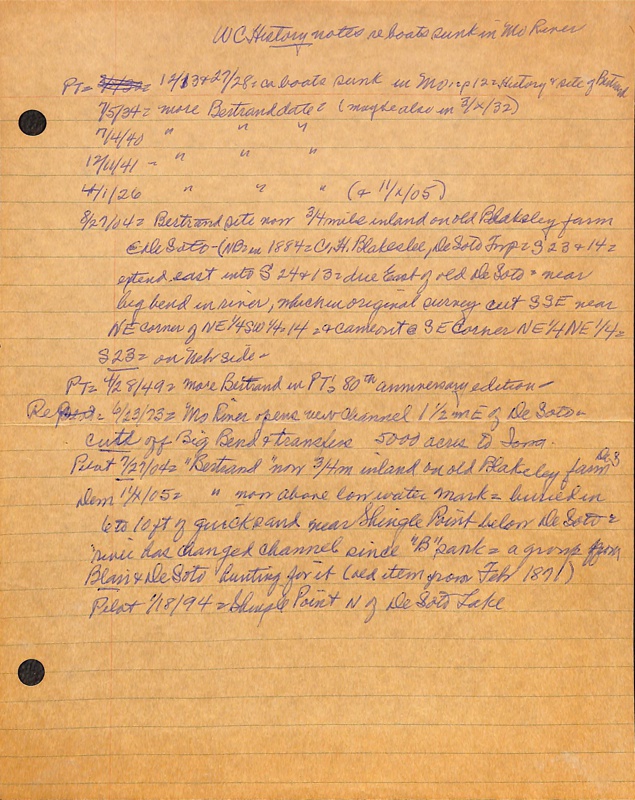 WC History notes re boats sunk in Mo River
PT = 12/13 & 27/28 = boats sunk in Mo = p 12 = History & site of Bertrand
7/5/34 = more Bertrand data (maybe also in 3/x/32)
7/4/40 " " "
12/11/41 - " " "
4/1/26 " " " (& 11/x/05)
8/27/04 = Bertrand site now 3/4 mile inland on old Blakesley farm
E De Soto - (NB: in 1884 = C.H. Blakeslee, De Soto Twp = S 23 & 14 =
extend east into S 24 & 13 = due East of old De Soto = near
big bend in river, which in original survey cut SSE near
NE corner of NE 1/4 SW 1/4 = 14 = & came out @ SE Corner NE 1/4 NE 1/4 =
S 23 = on Neb side -
PT = 4/28/49 = more Bertrand in PT's 80th anniversary edition -
Re = 6/23/73 = Mo River opens new channel 1 1/2 m E of De Soto -
cuts off Big Bend & transfers 5000 acres to Iowa.
Pilot 7/27/04 = "Bertrand" now 3/4 m inland on old Blakesley farm De S
Dem 11/x/05 = " now above low water mark = buried in
6 to 10 ft of quicksand near Shingle Point below De Soto =
river has changed channel since "B" sank = a group from
Blair & De Soto hunting for it (old item from Feb 1871)
Pilot 1/18/94 = Shingle Point N of De Soto Lake